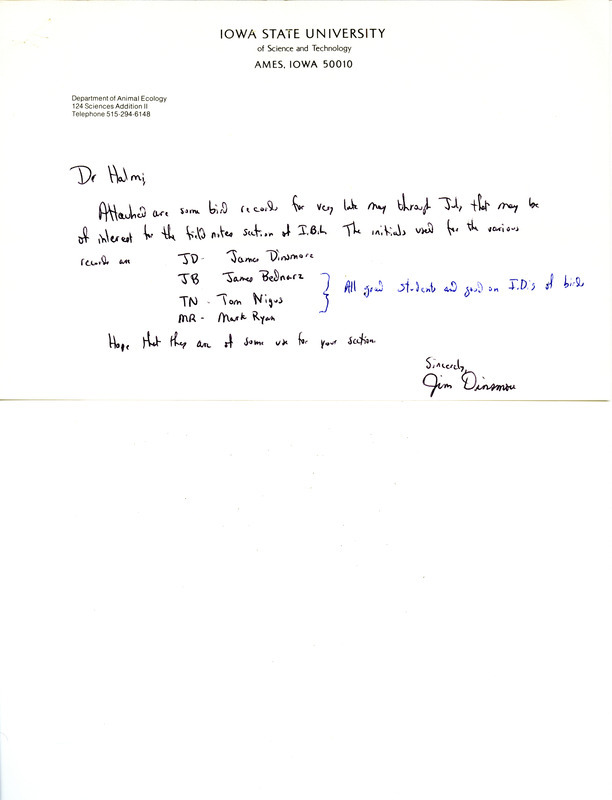 IOWA STATE UNIVERSITY
of Science and Technology
AMES, IOWA 50010
Department of Animal Ecology
124 Sciences Addition II
Telephone 515-294-6148
Dr Halmi,
Attached are some bird records for very late may through July that may be
of interest for the field notes section of I.B.L. The initials used for the various
records are JD - James Dinsmore
JB James Bednarz
TN - Tom Nigus
MR - Mark Ryan
All good students and good on I.D.'s of birds
Hope that they are of some use for your section
Sincerely,
Jim Dinsmore